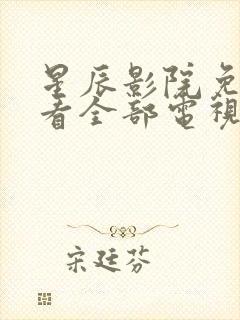 星辰影院免
看全部電視
宋廷芬